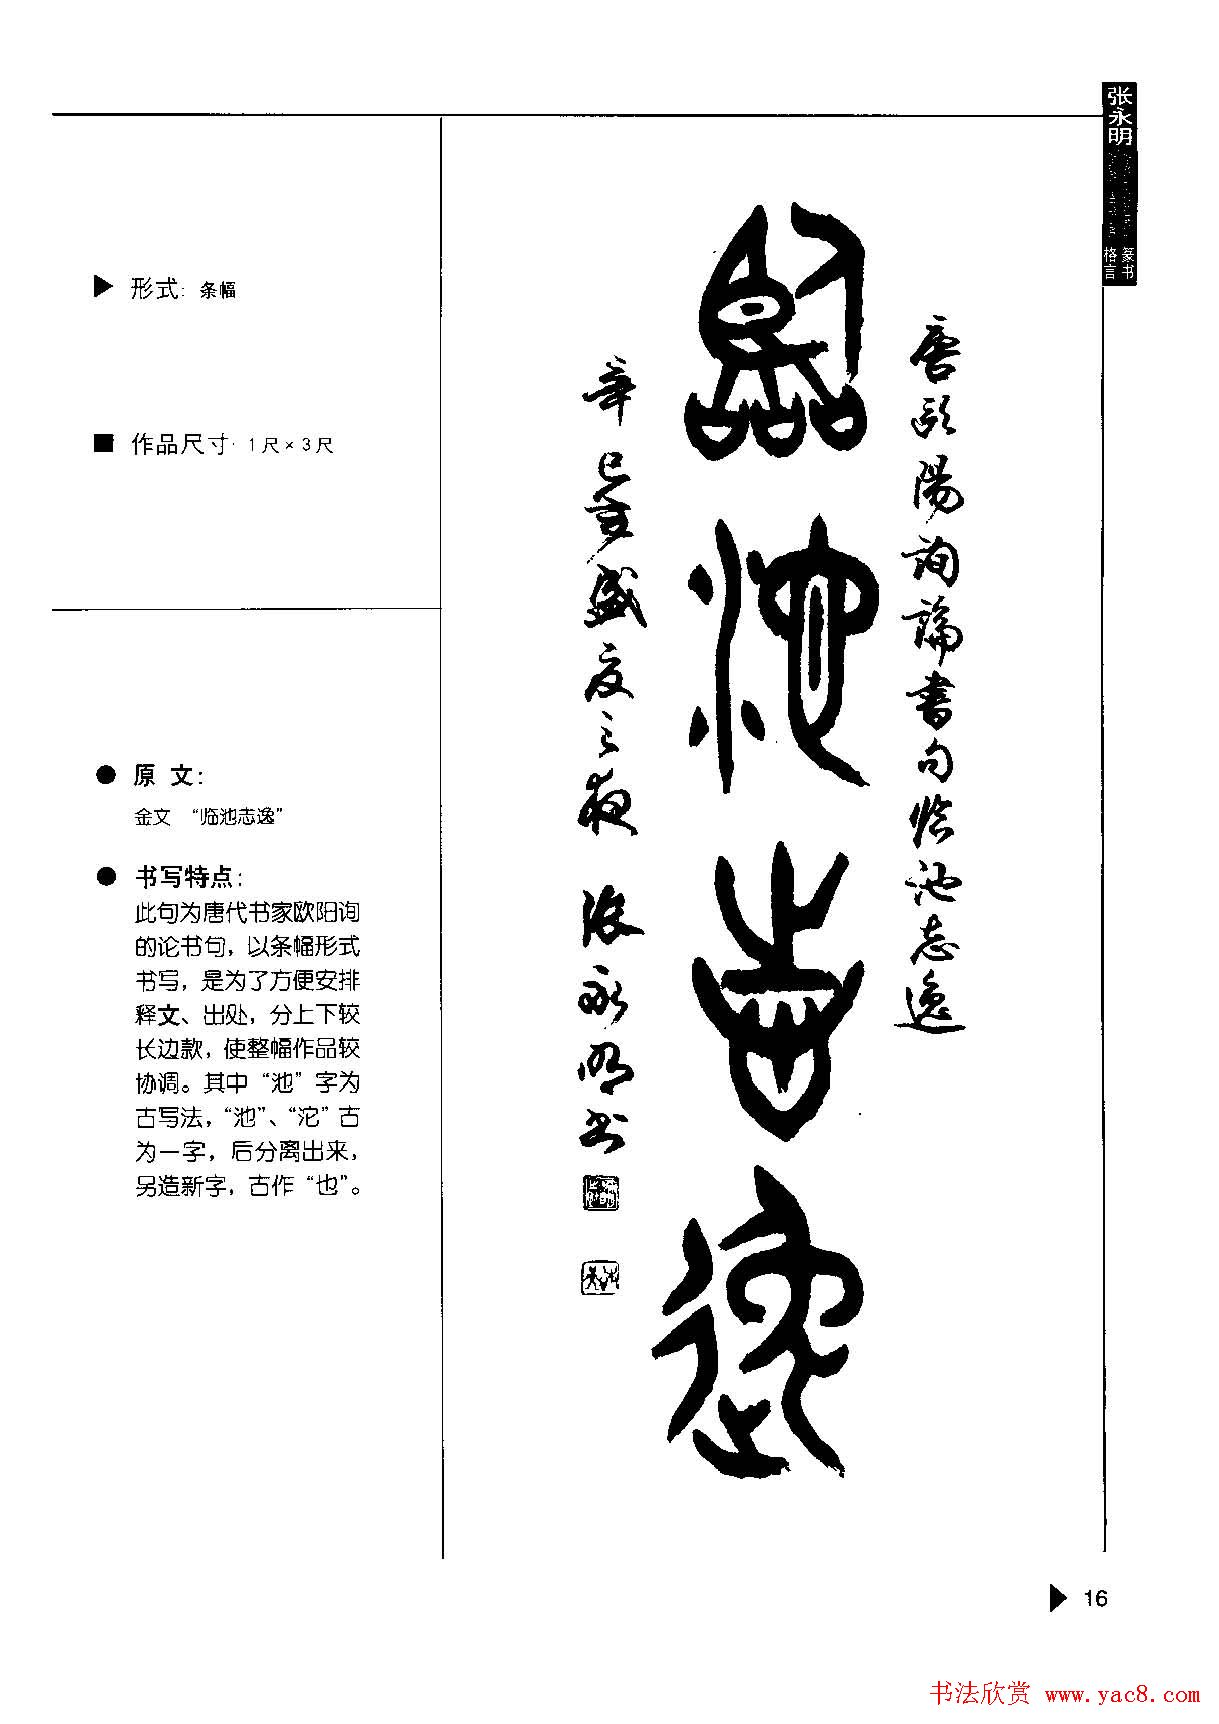 张永明
篆书
格言
形式：条幅
作品尺寸：1尺×3尺
原 文：
金文 “临池志逸”
书写特点：
此句为唐代书家欧阳询
的论书句，以条幅形式
书写，是为了方便安排
释文、出处，分上下较
长边款，使整幅作品较
协调。其中“池”字为
古写法，“池”、“沱”古
为一字，后分离出来，
另造新字，古作“也”。
唐欧陽詢論書句临池志逸
臨池志逸
辛巳夏盛夏之夜 张永明书
16
书法欣赏 www.yac8.com